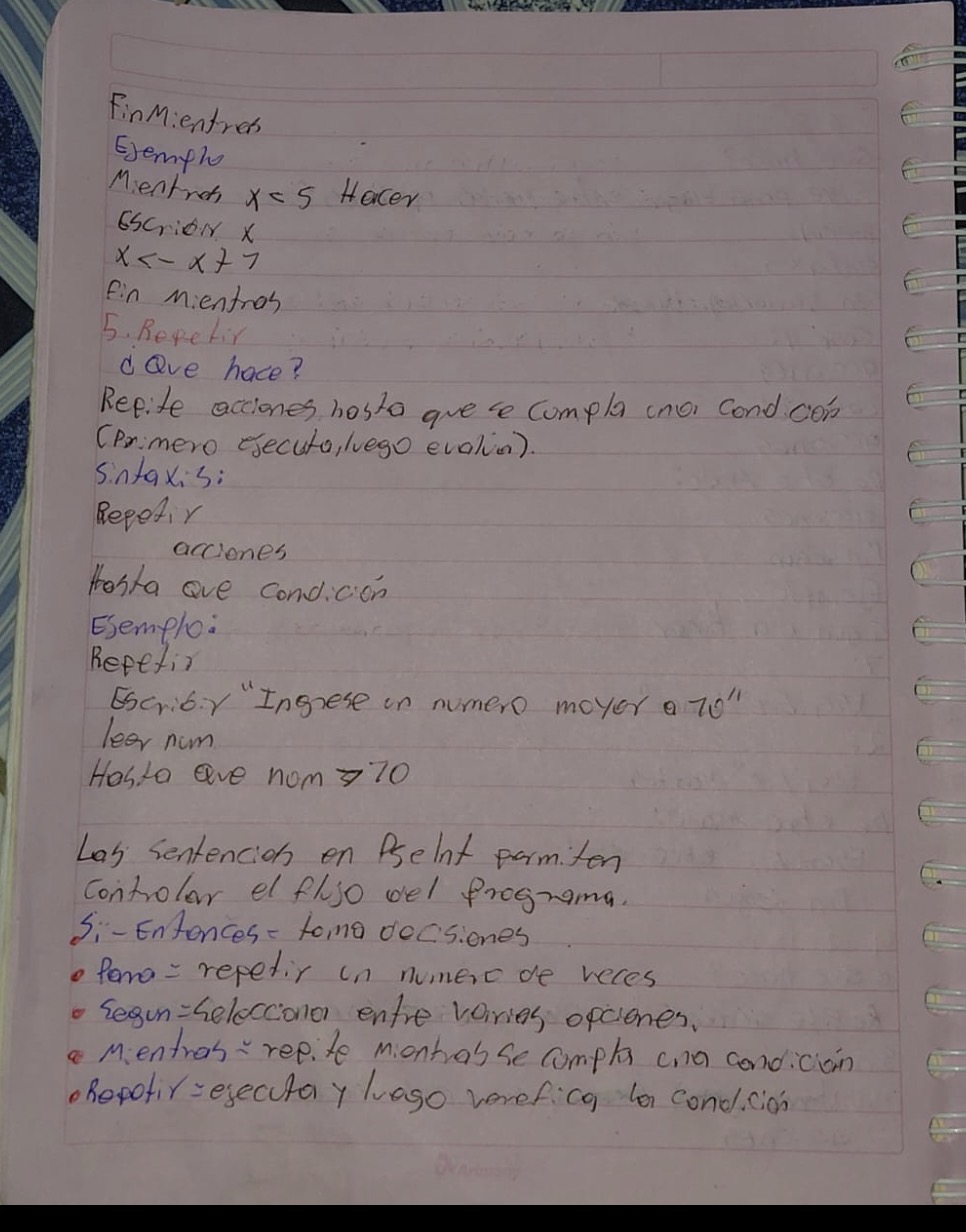 FinMientras
Ejemplo
Mientras x < 5 Hacer
Escribir x
x <- x + 1
fin mientras
5. Repetir
¿Que hace?
Repite acciones hasta que se cumpla una condición
(Primero ejecuta, luego evalúa).
Sintaxis:
Repetir
acciones
Hasta Que condición
Ejemplo:
Repetir
Escribir "Ingrese un numero mayor a 10"
leer num
Hasta Que num > 10
Las sentencias en PseInt permiten
controlar el flujo del programa.
Si - Entonces = toma decisiones
• Para = repetir un numero de veces
• Segun = Selecciona entre varias opciones.
• Mientras = repite mientras se cumpla una condición
• Repetir = ejecuta y luego verefica la condición